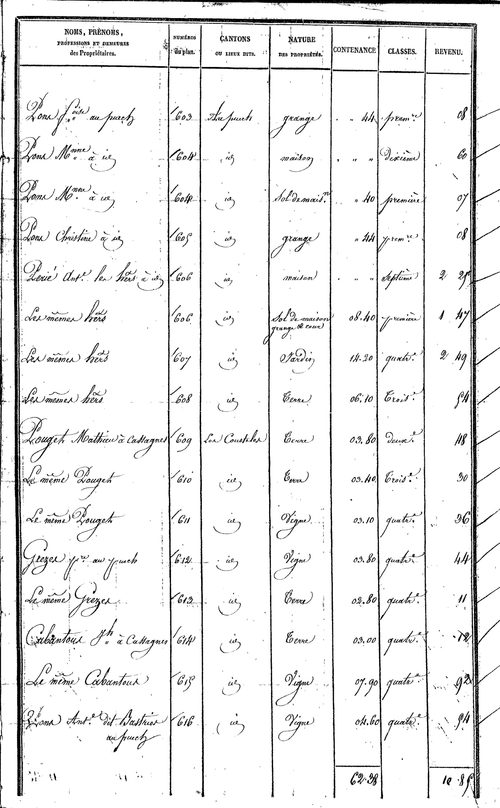 NOMS, PRÉNOMS, PROFESSIONS ET DEMEURE des Propriétaires. NUMÉROS du plan. CANTONS OU LIEUX DITS. NATURE DES PROPRIÉTÉS. CONTENANCE CLASSES. REVENU.
Pons f.oise au puech 1603 Le puech grange " " 44 prem.re 08
Pons M.nne à id 1604 id maison " " " Dixième 60
Pons M.nne à id 1604 id Sol de mais.n " 40 première 07
Pons Christine à id 1605 id grange " 44 prem.re 08
Ant.e les hérs à id 1606 id maison " " " Septième 2 25
Les mêmes hérs 1606 id Sol de maison grange & cour 08.40 première 1 47
Les mêmes hérs 1607 id Jardin 14.20 quatr.e 2 49
Les mêmes hérs 1608 id Terre 06.10 Trois.e 54
Pouget Mathieu à Cassagnes 1609 Les Coustelos Terre 03.80 deux.e 48
Le même Pouget 1610 id Terre 03.40 Trois.e 30
Le même Pouget 1611 id Vigne 03.10 quatr.e 36
Grezes p.re au puech 1612 id Vigne 03.80 quatr.e 44
Le même Grezes 1613 id Terre 02.80 quatr.e 11
Cabantous J.h à Cassagnes 1614 id Terre 03.00 quatr.e 12
Le même Cabantous 1615 id Vigne 07.90 quatr.e 92
Pons Ant.e dit 1616 id Vigne 04.60 quatr.e 54
au puech
62.38 10.85